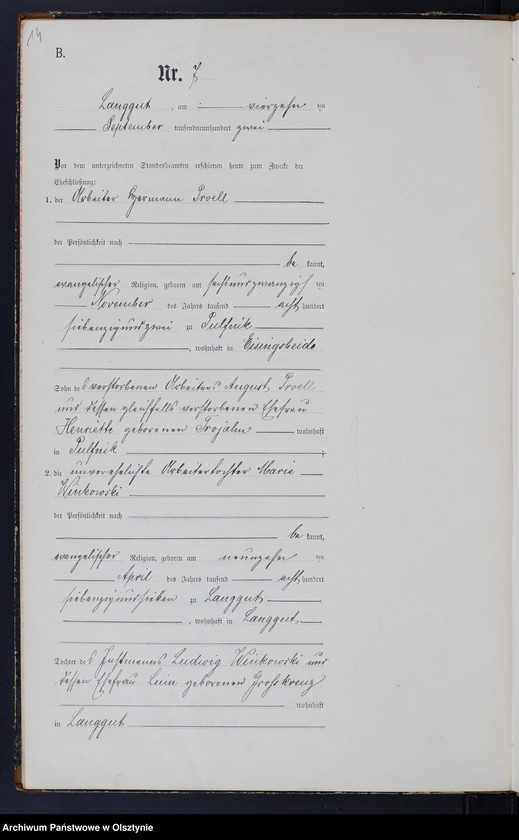 14
B.
Nr. 7
Langgut, am vierzehn ten
September tausendneunhundert zwei
Vor dem unterzeichneten Standesbeamten erschienen heute zum Zwecke der
Eheschließung:
1. der Arbeiter Hermann Proell
der Persönlichkeit nach
be kannt,
evangelischer Religion, geboren am sechsundzwanzigsten
November des Jahres tausend acht hundert
siebenzigundzwei zu Pulfnik
, wohnhaft in Eisingsheide
Sohn des verstorbenen Arbeiters August Proell
und dessen gleichfalls verstorbenen Ehefrau
Henriette geborenen Trojahn wohnhaft
in Pulfnik
2. die unverehelichte Arbeitertochter Marie
Winkowski
der Persönlichkeit nach
be kannt,
evangelischer Religion, geboren am neunzehn ten
April des Jahres tausend acht hundert
siebenzigundsieben zu Langgut
, wohnhaft in Langgut
Tochter des Instmanns Ludwig Winkowski und
dessen Ehefrau Luise geborenen Groskreuz
wohnhaft
in Langgut
Archiwum Państwowe w Olsztynie